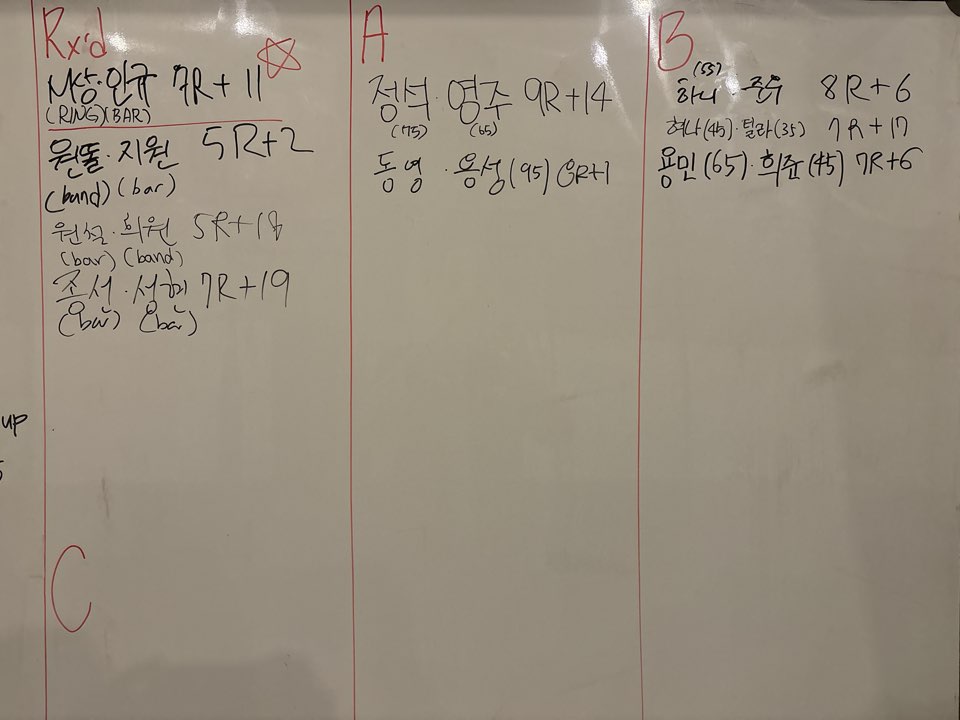 Rx'd
상·인규 7R+11
(RING)(BAR)
원똘·지원 5R+2
(band)(bar)
원철·희원 5R+18
(bar)(band)
종서·서혜 7R+19
(bar) (bar)
C
A
정석·영주 9R+14
(75) (65)
동영·용성(95) 8R+1
B
(55)
하니·준우 8R+6
혀나(45)·털라(35) 7R+17
용민(65)·희준(45) 7R+6
up